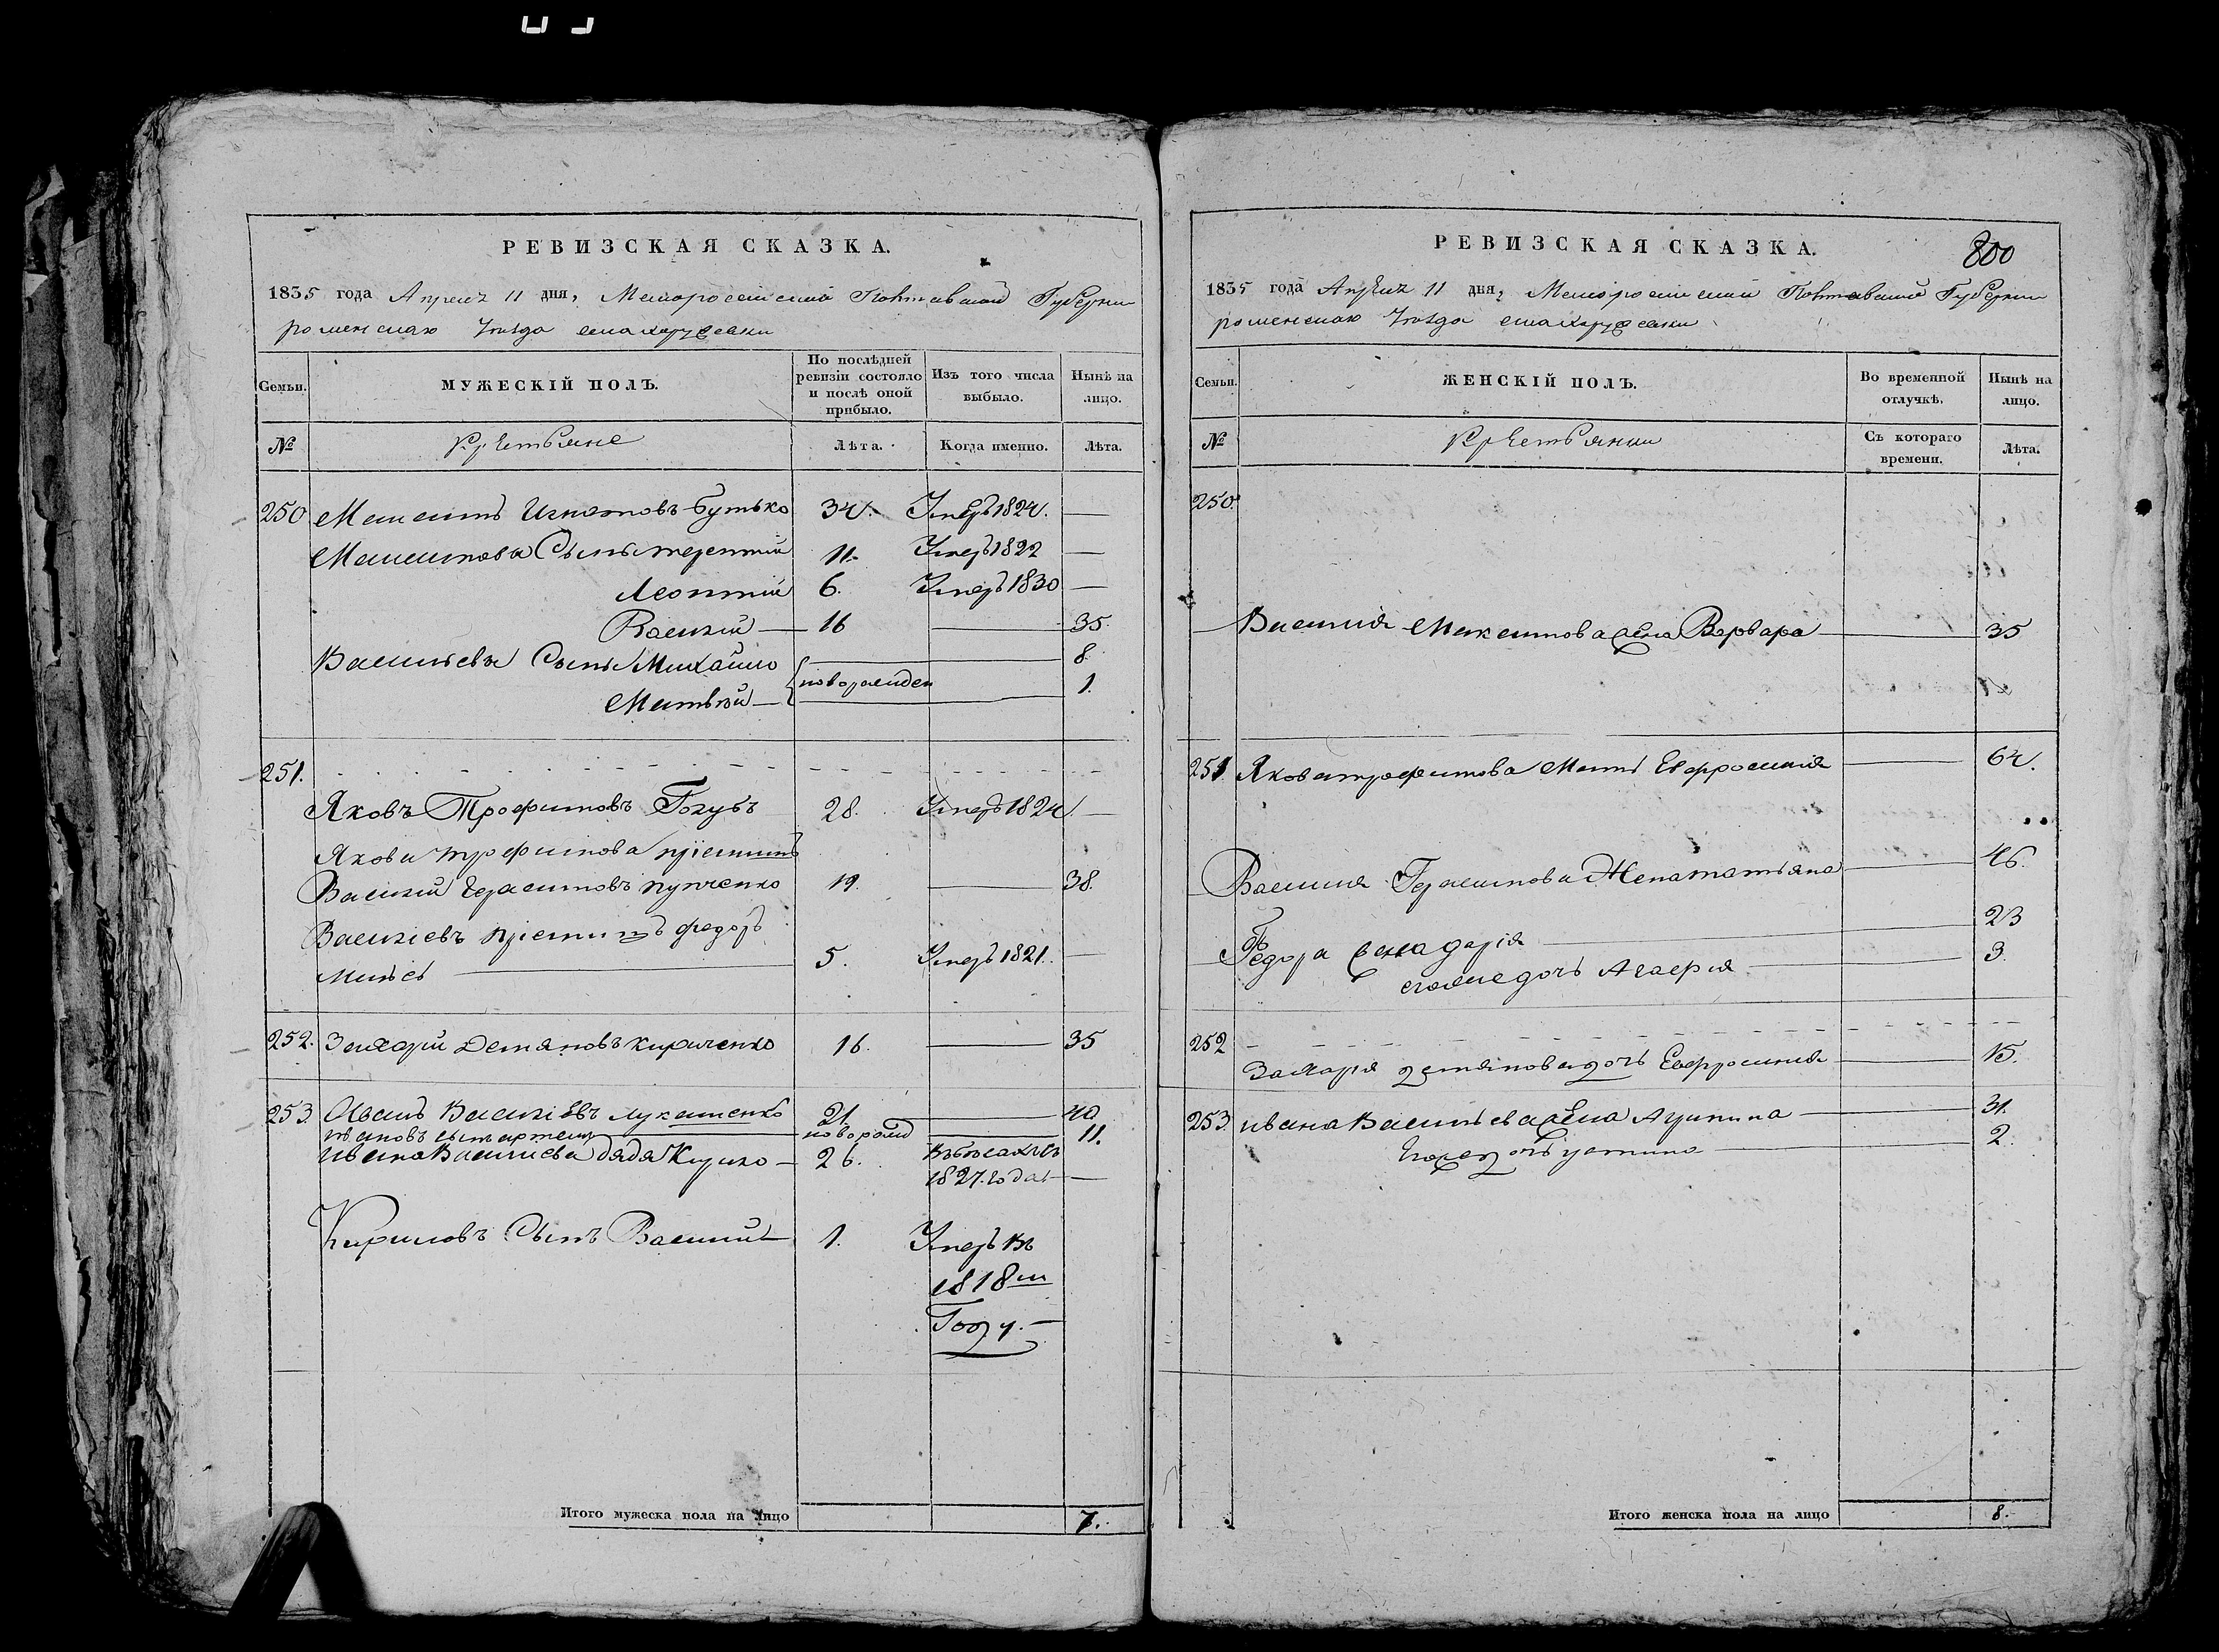 РЕВИЗСКАЯ СКАЗКА.
1835 года Апреля 11 дня, Малоросейской Полтавской Губернии
роменскаго уезда села харусевки
Семьи.
МУЖЕСКІЙ ПОЛЪ.
По послѣдней ревизіи состояло и послѣ оной прибыло.
Изъ того числа выбыло.
Нынѣ на лицо.
№
Крестьяне
Лѣта.
Когда именно.
Лѣта.
250 Максимъ Игнатовъ Бутько 34. Умеръ 1824. —
Максимова Сынъ терентій 11. Умеръ 1822 —
Леонтій 6. Умеръ 1830 —
Василій — 16 — 35.
Васильевы Сыны Михайло 8.
новорожден
Матвѣй — 1.
251.
Яковъ Трофимовъ Голубъ 28. Умеръ 1824. —
Якова трофимова пріемышъ
Василій Герасимовъ 19. — 38.
Васильевъ пріемышъ федоръ
5. Умеръ 1821. —
252. Захарій Демяновъ Кириченко 16. — 35
253. Иванъ Васильевъ Лукашенко 21. — 40.
ивановъ сынъ артемъ новорожд — 11.
ивана Васильева дядя — 26. Въ бѣгахъ съ
1827. года — —
Кириловъ Сынъ Василий 1. Умеръ въ
1818м
Году. —
Итого мужеска пола на лицо 7.
РЕВИЗСКАЯ СКАЗКА.
800
1835 года Апреля 11 дня, Малоросейской Полтавской Губернии
роменскаго уезда села харусевки
Семьи.
ЖЕНСКІЙ ПОЛЪ.
Во временной отлучкѣ.
Нынѣ на лицо.
№
Крестьянки
Съ котораго времени.
Лѣта.
250.
Василия Максимова жена Варвара — 35
251 Якова трофимова Мать Евфросинія — 64.
Василия Герасимова Жена татьяна — 46.
Федора жена дарія — 23
дочь Агафия — 3.
252
Захарія демянова дочь Евфросиния — 15.
253 ивана Васильева жена — 31.
Его дочь устина — 2.
Итого женска пола на лицо 8.